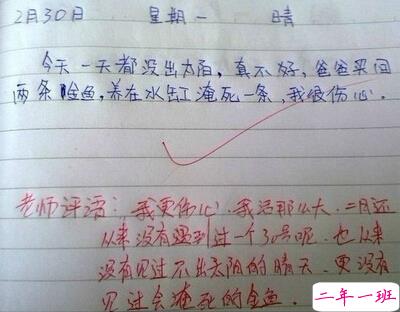 2月30日 星期一 晴
今天一天都没出太阳,真不好,爸爸买回
两条金鱼,养在水缸淹死一条,我很伤心.
老师评语:我更伤心.我活那么大.二月还
从来没有遇到过一个30号呢.也从来
没有见过不出太阳的晴天.更没有
见过会淹死的金鱼.
二年一班